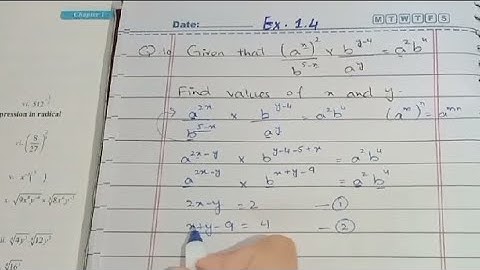 Chapter 1
vi. 512
pression in radical
vi. (-8/27)
v. x
v. √9x⁴y⁻⁶ ÷ ∛8x⁶y⁻³
iii. ∜4y³ ∜12y³
∜16³
Date: Ex. 1.4
M T W T F S
Q 10 Given that (aˣ)²/b⁵⁻ˣ × bʸ⁻⁴/aʸ = a²b⁴
Find values of x and y.
a²ˣ/b⁵⁻ˣ × bʸ⁻⁴/aʸ = a²b⁴ (aᵐ)ⁿ = aᵐⁿ
a²ˣ⁻ʸ × bʸ⁻⁴⁻⁵⁺ˣ = a²b⁴
a²ˣ⁻ʸ × bˣ⁺ʸ⁻⁹ = a²b⁴
2x-y = 2 — ①
x+y-9 = 4 — ②